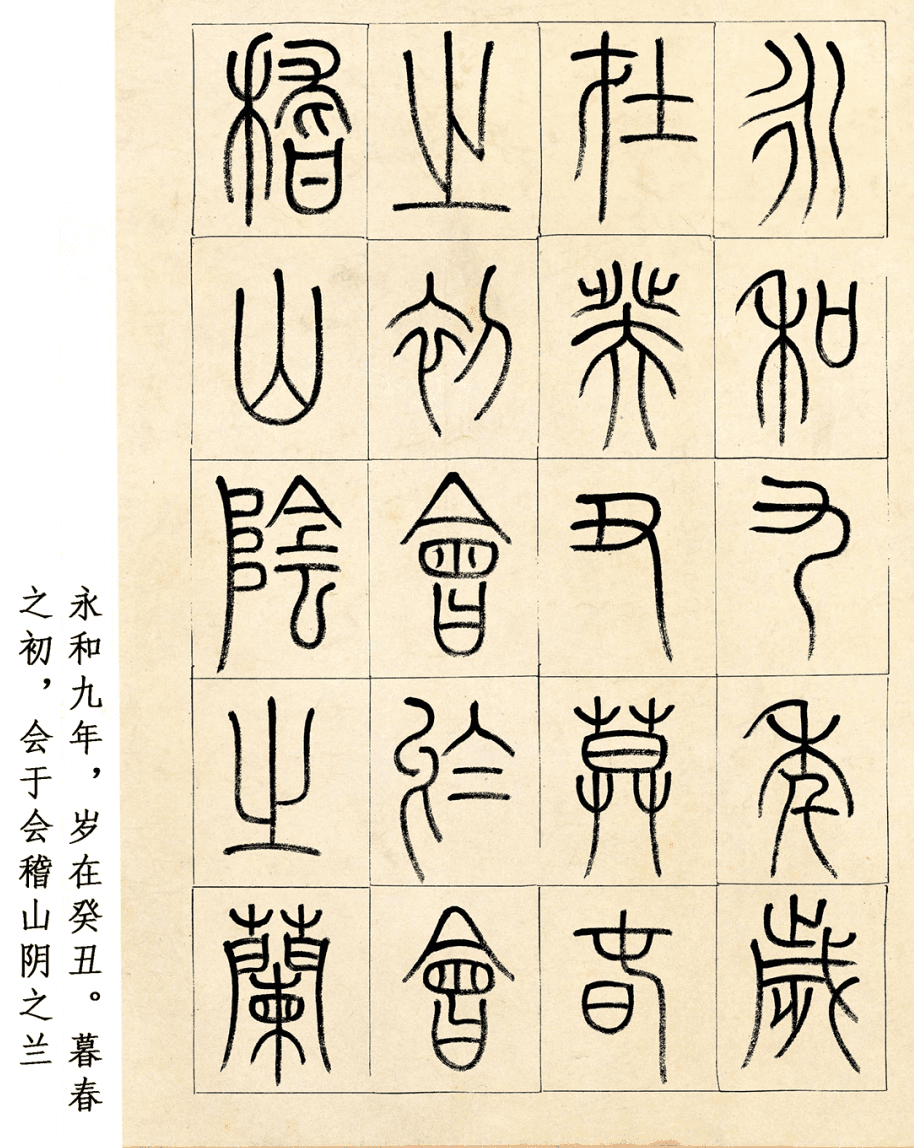 永和九年歲
在癸丑莫春
之初會於會
稽山陰之蘭
永和九年，岁在癸丑。暮春
之初，会于会稽山阴之兰